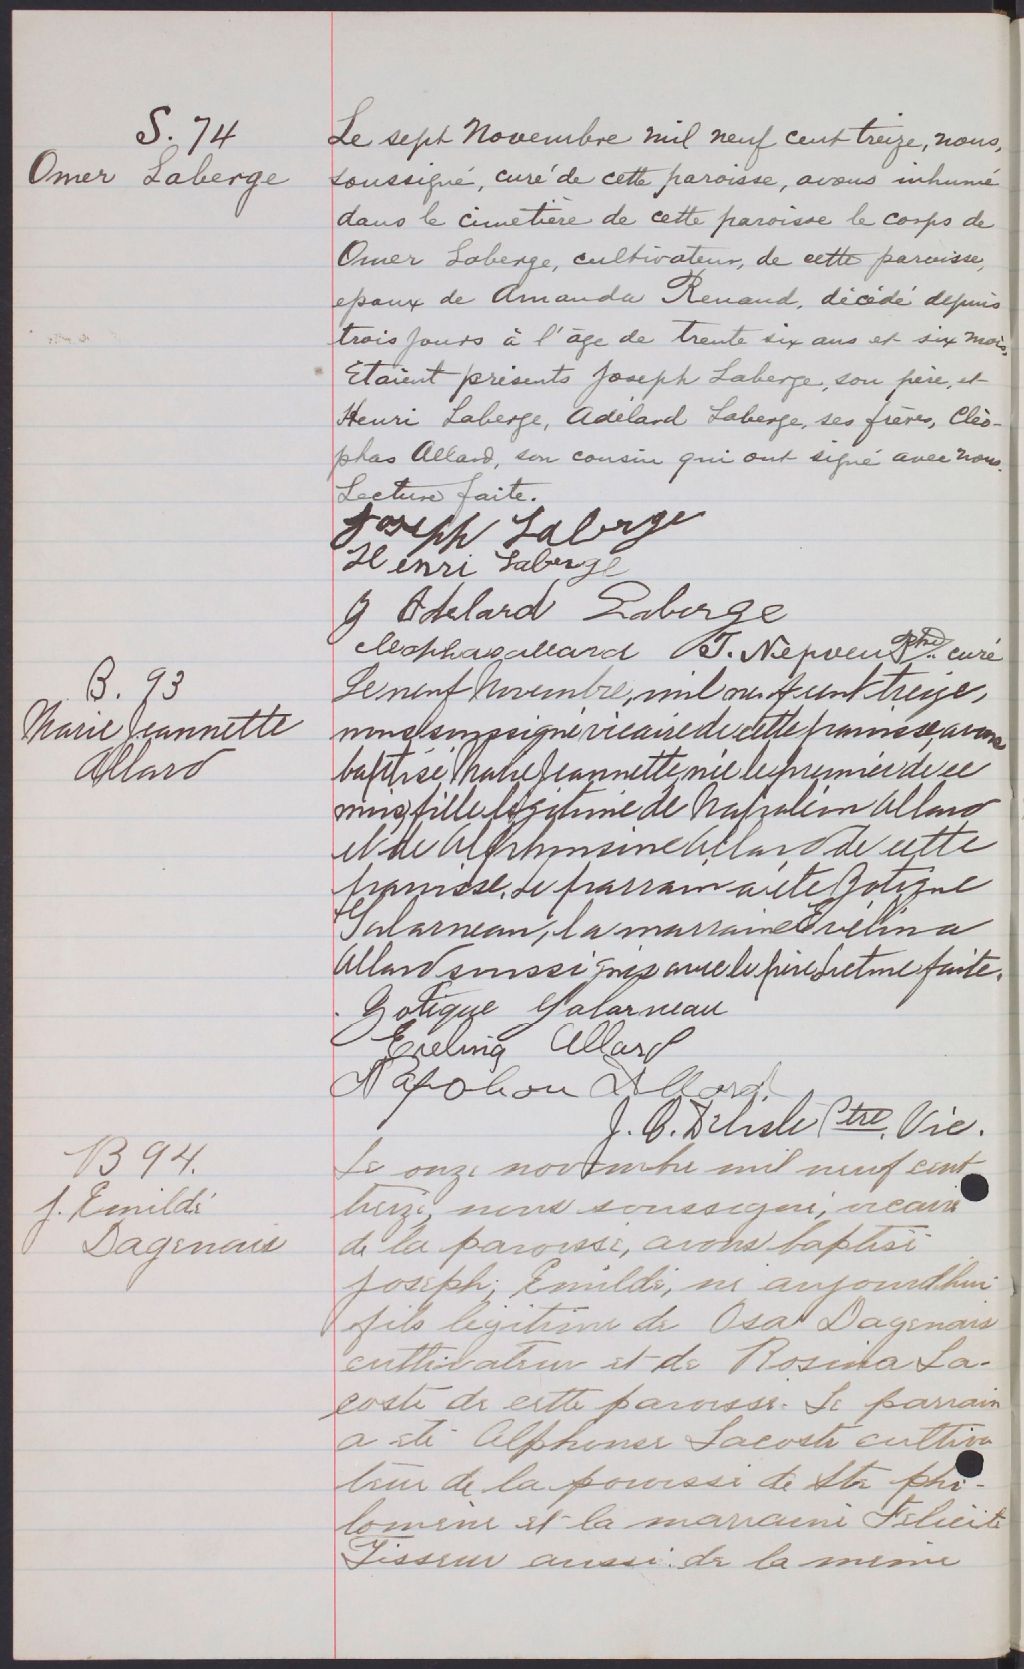 S. 74
Omer Laberge
Le sept Novembre mil neuf cent treize, nous,
soussigné, curé de cette paroisse, avons inhumé
dans le cimetière de cette paroisse le corps de
Omer Laberge, cultivateur, de cette paroisse,
epoux de Amanda Renaud, décédé depuis
trois jours à l'âge de trente six ans et six mois.
Etaient présents Joseph Laberge, son père, et
Henri Laberge, Adélard Laberge, ses frères, Cléo-
phas Allard, son cousin qui ont signé avec nous.
Lecture faite.
Joseph Laberge
Henri Laberge
J Adelard Laberge
Cleophas allard J. Nepveu Ptre. curé
B. 93
Marie Jeannette
Allard
Le neuf Novembre, mil neuf cent treize,
nous soussigné vicaire de cette paroisse, avons
baptisé Marie Jeannette, née le premier de ce
mois, fille légitime de Napoléon Allard
et de Alphonsine Allard de cette
paroisse. Le parrain a été Zotique
Galarneau, la marraine Evélina
Allard soussignés avec le père. Lecture faite.
Zotique Galarneau
Evelina Allard
Napoleon Allard
J. C. Delisle Ptre. Vic.
B 94.
J. Emildé
Dagenais
Le onze novembre mil neuf cent
treize, nous soussigné, vicaire
de la paroisse, avons baptisé
Joseph, Emildé, né aujourdhui
fils légitime de Osa Dagenais
cultivateur et de Rosina La-
coste de cette paroisse. Le parrain
a été Alphonse Lacoste cultiva
teur de la paroisse de Ste phi-
lomène et la marraine Félicité
Tisseur aussi de la même